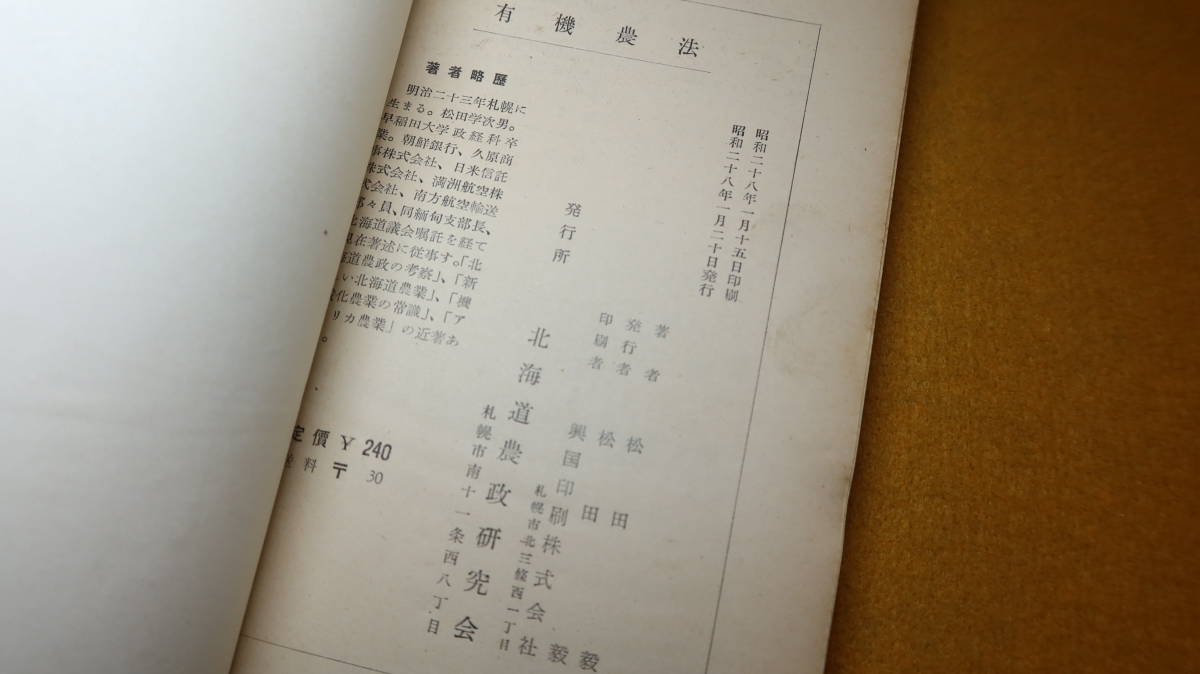 有機農法
著者略歴
明治二十三年札幌に
生まる。松田学次男。
早稲田大学政経科卒
業。朝鮮銀行、久原商
事株式会社、日米信託
株式会社、満洲航空株
式会社、南方航空輸送
部々員、同緬甸支部長、
北海道議会嘱託を経て
現在著述に従事す。「北
海道農政の考察」、「新
しい北海道農業」、「機
械化農業の常識」、「ア
メリカ農業」の近著あ
。
定價 ¥ 240
送料 〒 30
昭和二十八年一月十五日印刷
昭和二十八年一月二十日発行
著者 松田毅
発行者 松田毅
印刷者 興国印刷株式会社
札幌市北三條西一丁目
発行所 北海道農政研究会
札幌市南十一条西八丁目